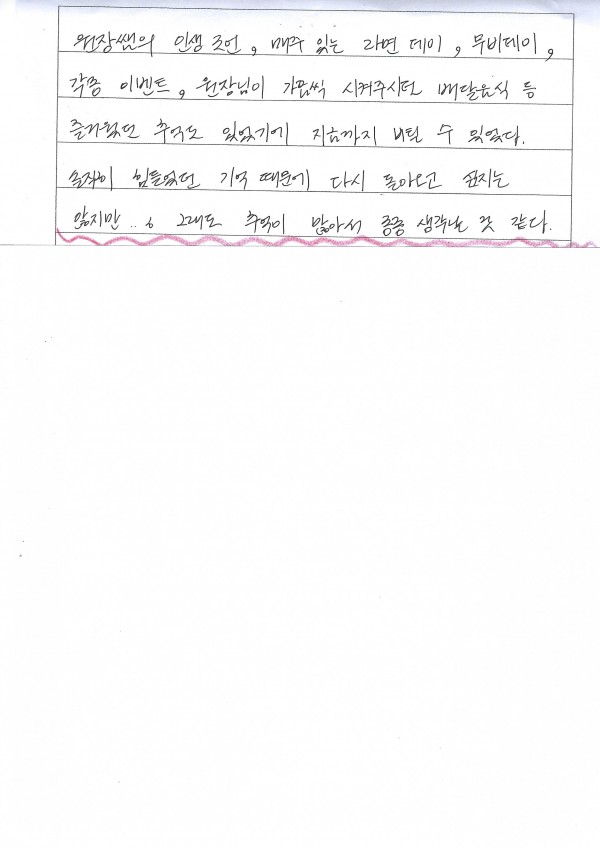 원장쌤의 인생 조언, 매주 있는 라면 데이, 무비데이,
각종 이벤트, 원장님이 가끔씩 시켜주시던 배달음식 등
즐거웠던 추억도 있었기에 지금까지 버틸 수 있었다.
솔직히 힘들었던 기억 때문에 다시 돌아오고 싶지는
않지만.. 그래도 추억이 많아서 종종 생각날 것 같다.